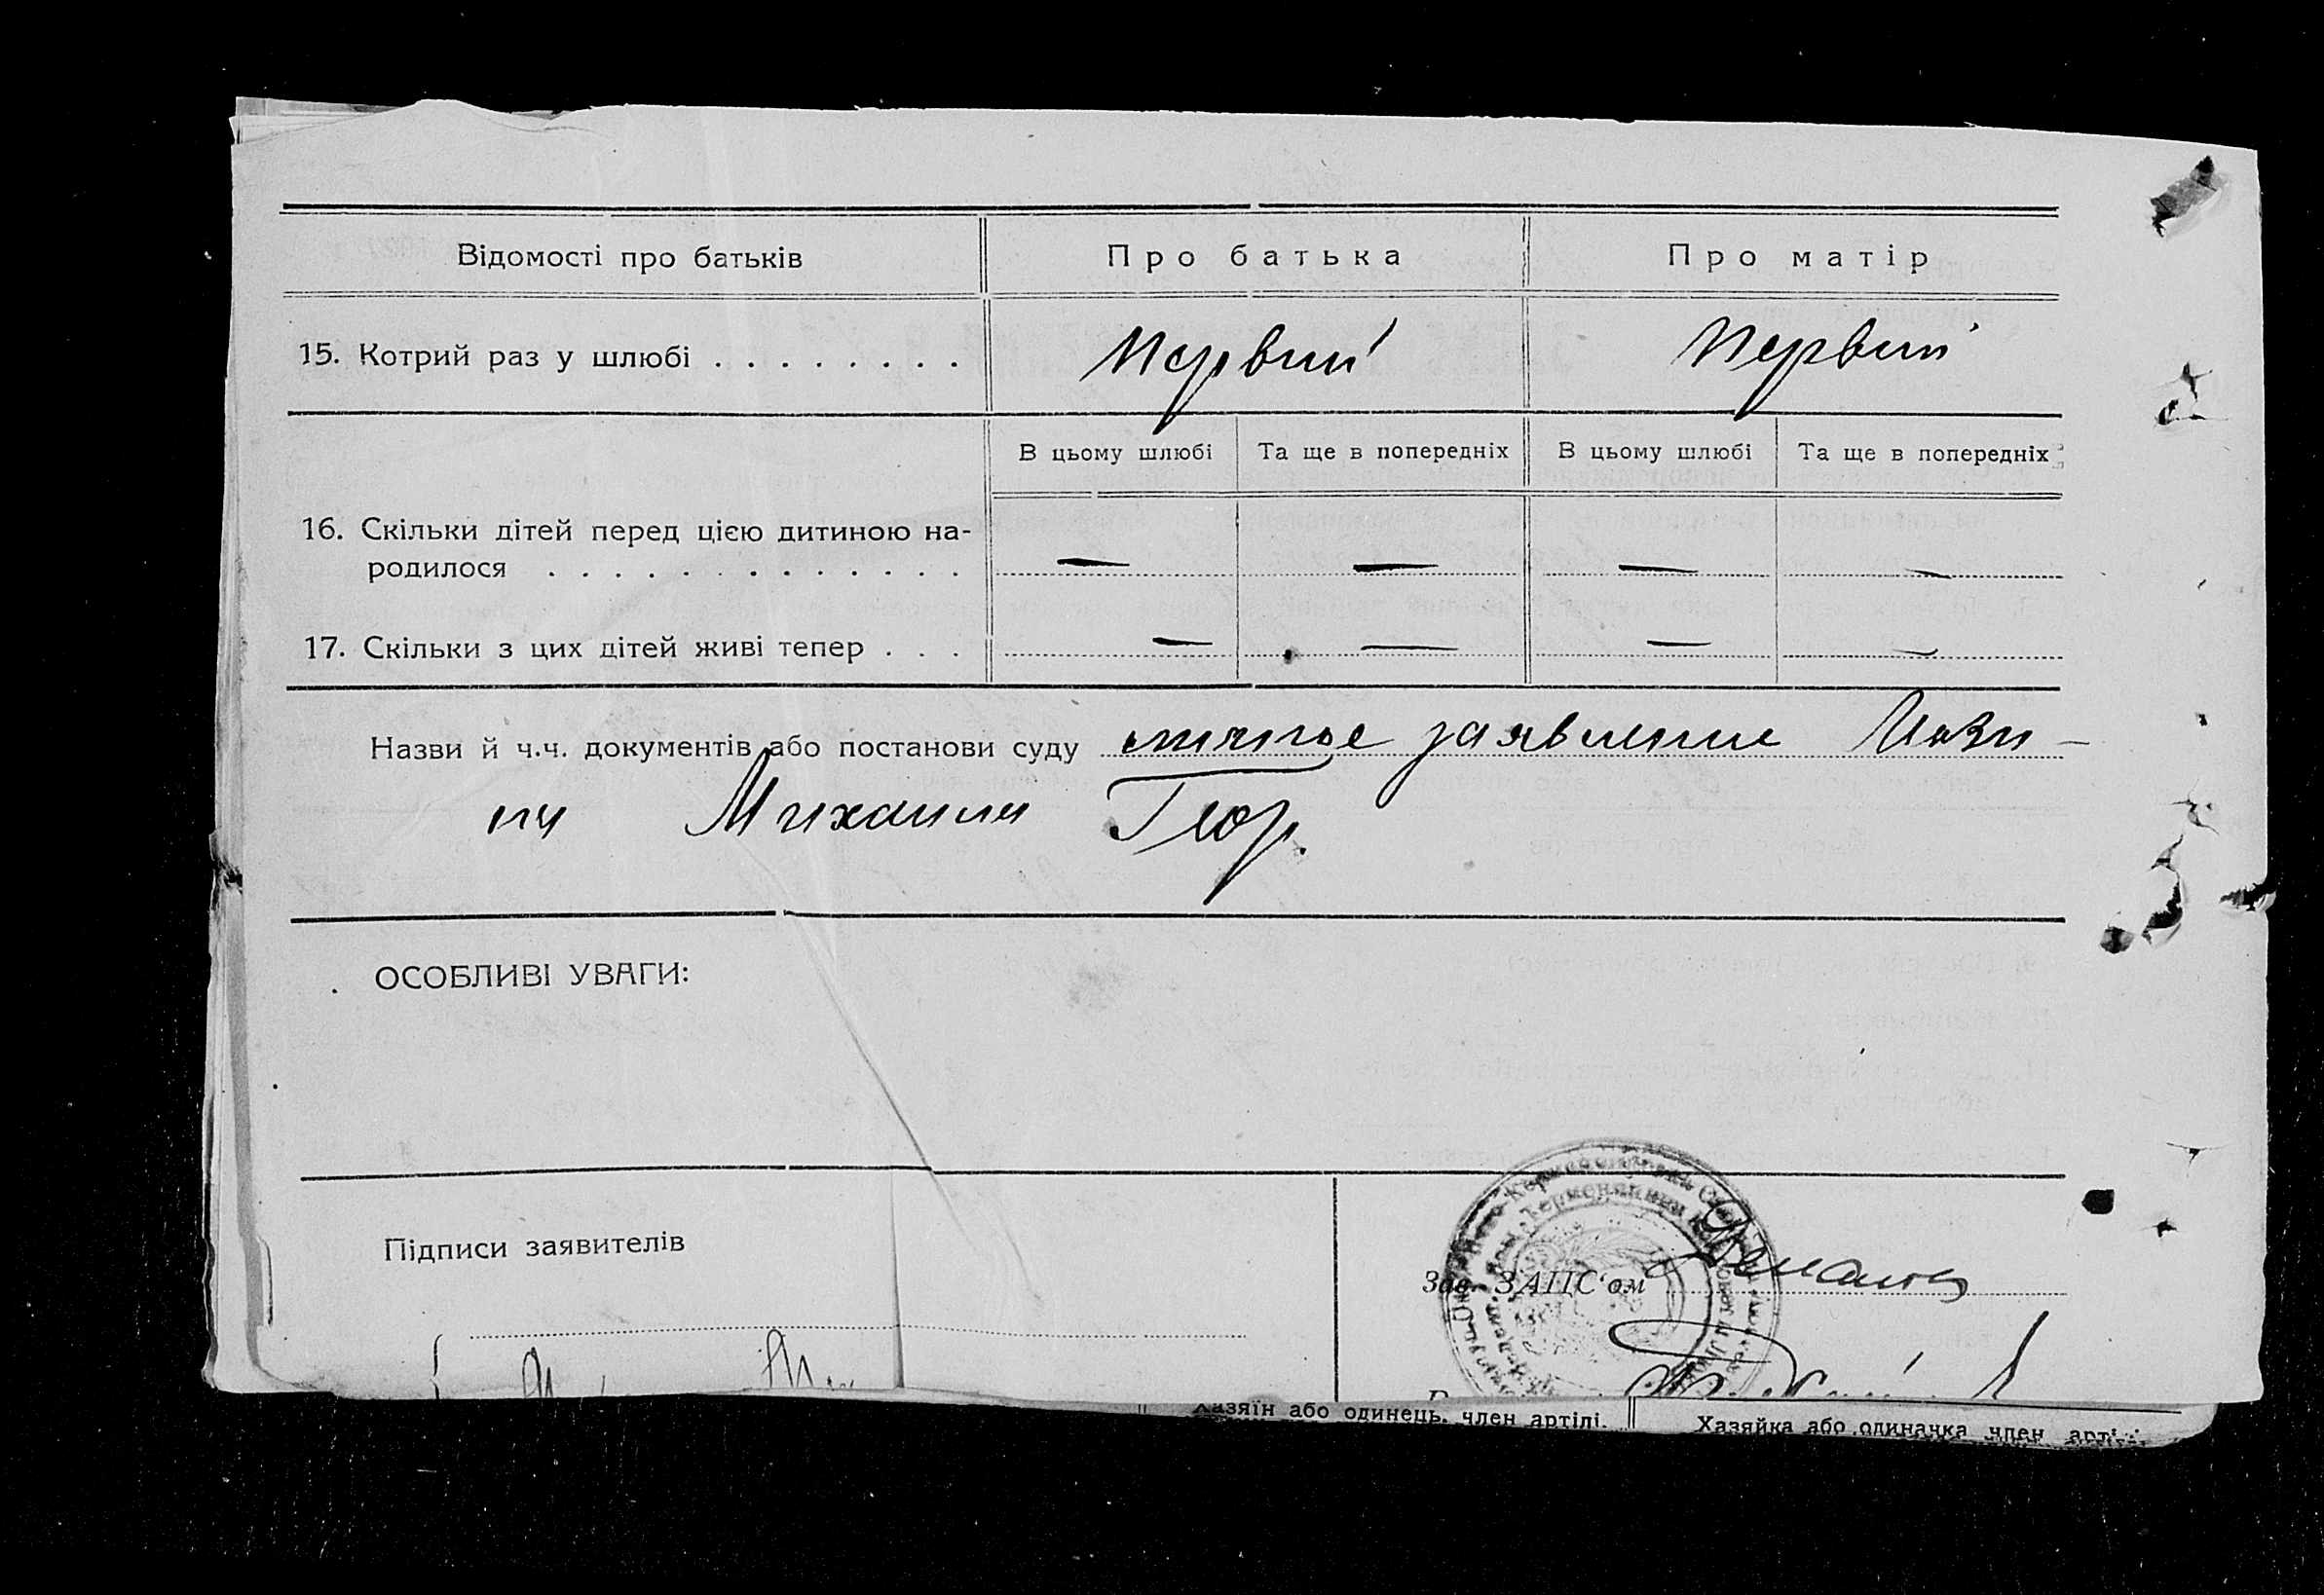 Відомості про батьків Про батька Про матір
15. Котрий раз у шлюбі . . . . . . . . Первий Первий
В цьому шлюбі Та ще в попередніх В цьому шлюбі Та ще в попередніх
16. Скільки дітей перед цією дитиною на-
родилося . . . . . . . . . . . . . — — — —
17. Скільки з цих дітей живі тепер . . . — — — —
Назви й ч.ч. документів або постанови суду личное заявление
Михаила Геор.
ОСОБЛИВІ УВАГИ:
Підписи заявителів
Зав. ЗАПС'ом
Хазяїн або одинець, член артілі. Хазяйка або одиначка член арті